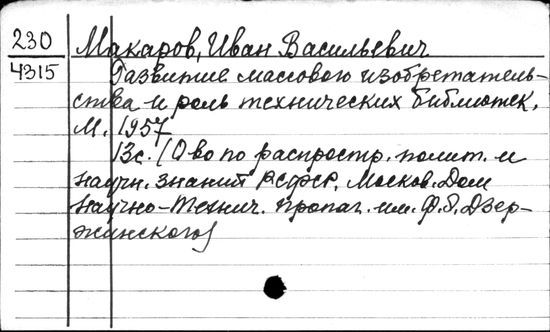 230 Макаров, Иван Васильевич
4315 Развитие массового изобретатель-
ства и роль технических библиотек.
М. 1957
13с. (О-во по распростр. полит. и
научн. знаний РСФСР. Москов. Дом
научно-технич. пропаг. им. Ф.Э. Дзер-
жинского)